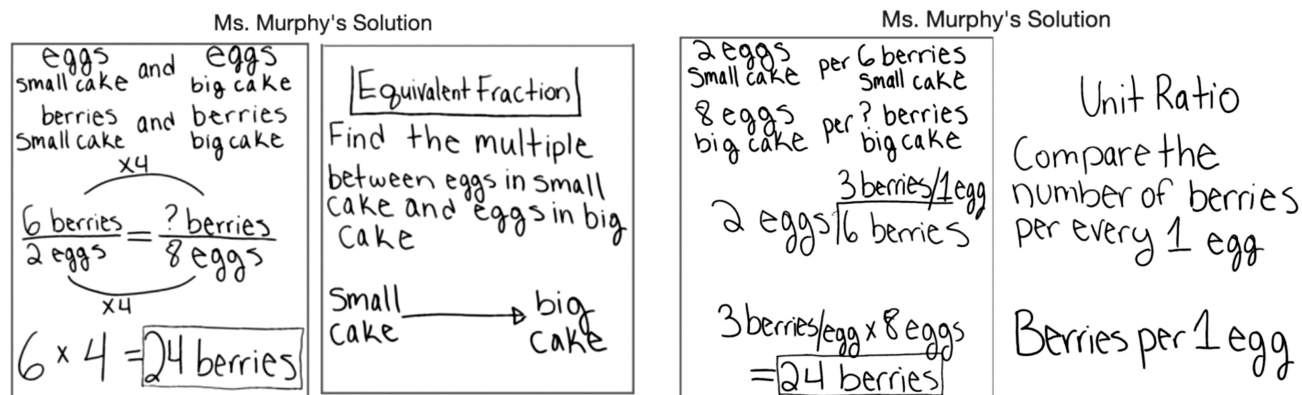 Ms. Murphy's Solution
eggs and eggs
small cake big cake
berries and berries
small cake big cake
x4
6 berries = ? berries
2 eggs 8 eggs
x4
6 x 4 = 24 berries
Equivalent Fraction
Find the multiple
between eggs in small
cake and eggs in big
cake
Small big
cake cake
Ms. Murphy's Solution
2 eggs per 6 berries
Small cake Small cake
8 eggs per ? berries
big cake big cake
3 berries/1 egg
2 eggs 6 berries
3 berries/egg x 8 eggs
= 24 berries
Unit Ratio
Compare the
number of berries
per every 1 egg
Berries per 1 egg